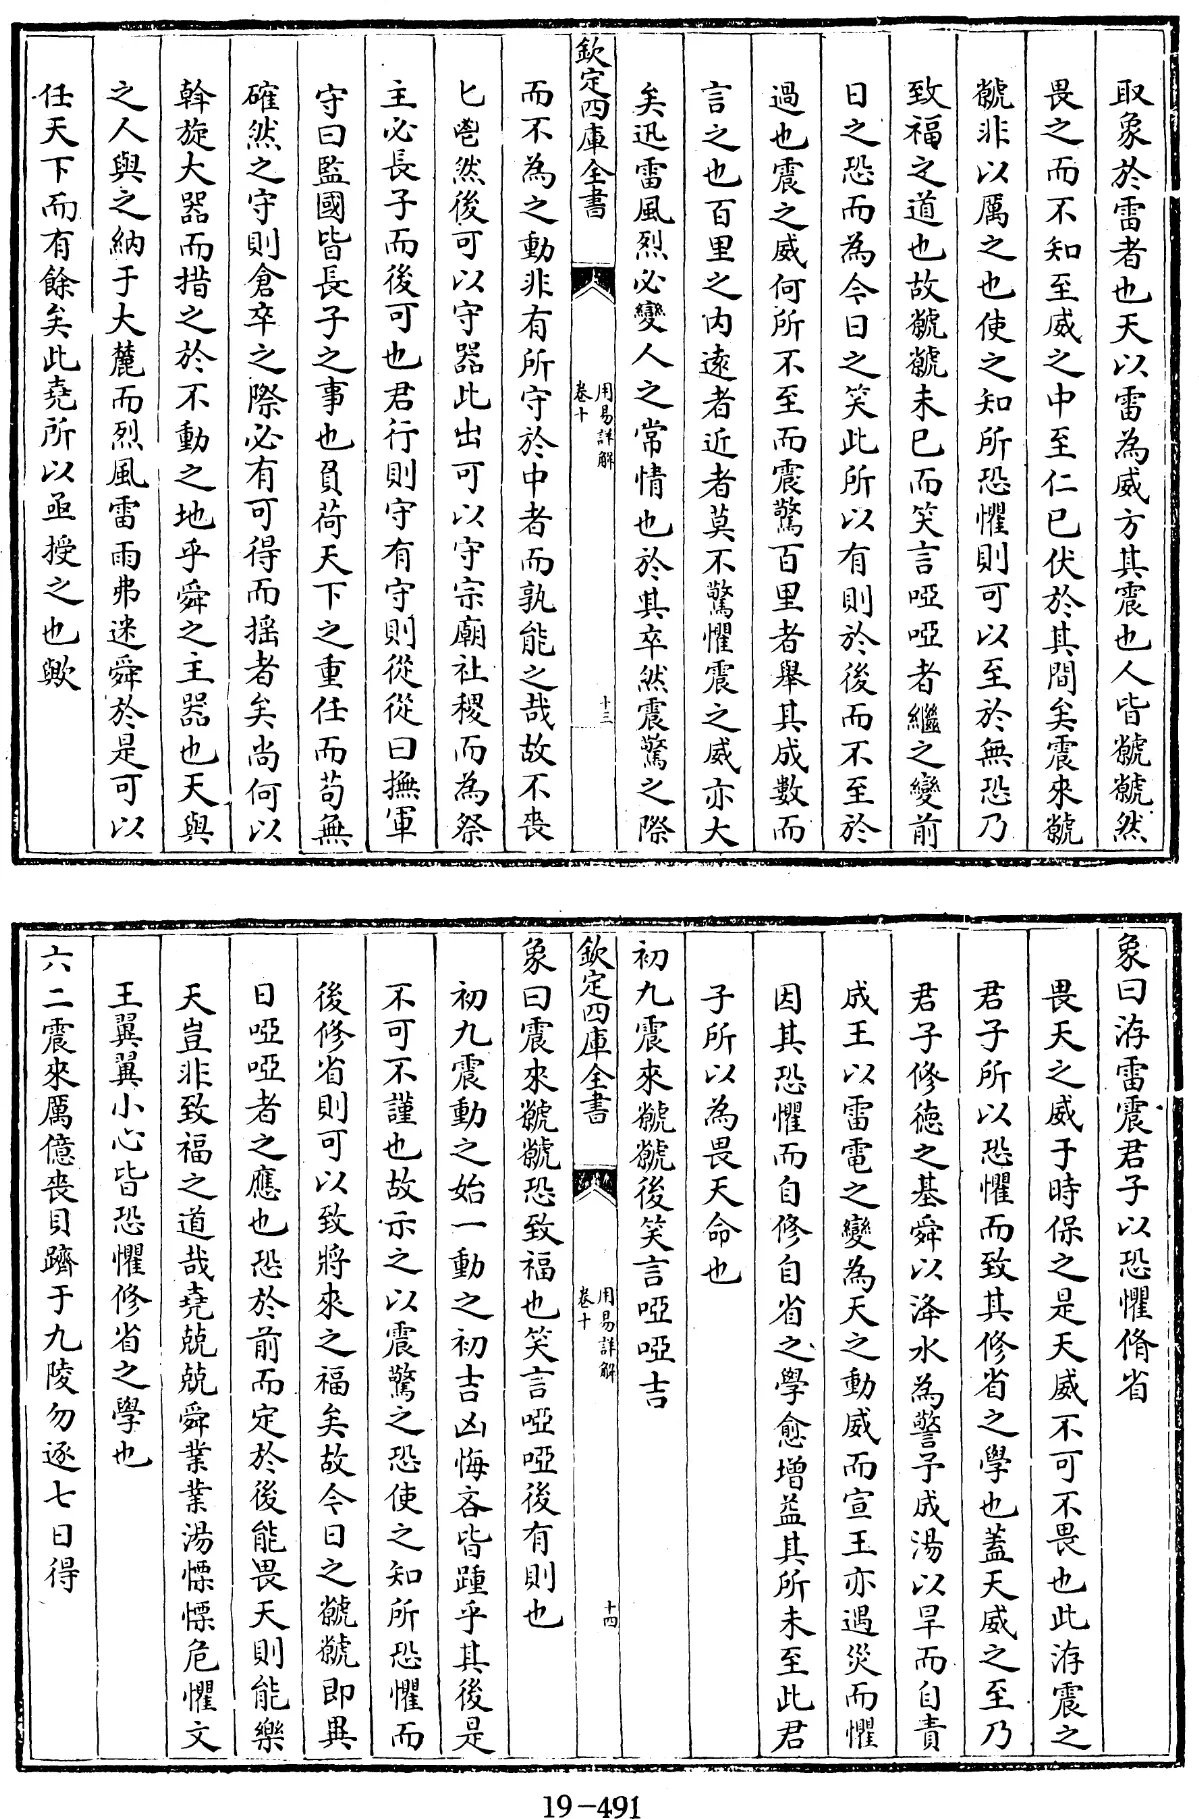 取象於雷者也天以雷為威方其震也人皆虩虩然
畏之而不知至威之中至仁已伏於其間矣震來虩
虩非以厲之也使之知所恐懼則可以至於無恐乃
致福之道也故虩虩未已而笑言啞啞者繼之變前
日之恐而為今日之笑此所以有則於後而不至於
過也震之威何所不至而震驚百里者舉其成數而
言之也百里之内遠者近者莫不驚懼震之威亦大
矣迅雷風烈必變人之常情也於其卒然震驚之際
欽定四庫全書
用易詳解
卷十
十三
而不為之動非有所守於中者而孰能之哉故不喪
匕鬯然後可以守器此出可以守宗廟社稷而為祭
主必長子而後可也君行則守有守則從從曰撫軍
守曰監國皆長子之事也負荷天下之重任而苟無
確然之守則倉卒之際必有可得而揺者矣尚何以
斡旋大器而措之於不動之地乎舜之主器也天與
之人與之納于大麓而烈風雷雨弗迷舜於是可以
任天下而有餘矣此堯所以亟授之也歟
象曰洊雷震君子以恐懼脩省
畏天之威于時保之是天威不可不畏也此洊震之
君子所以恐懼而致其修省之學也蓋天威之至乃
君子修德之基舜以洚水為警予成湯以旱而自責
成王以雷電之變為天之動威而宣王亦遇災而懼
因其恐懼而自修自省之學愈增益其所未至此君
子所以為畏天命也
初九震來虩虩後笑言啞啞吉
欽定四庫全書
用易詳解
卷十
十四
象曰震來虩虩恐致福也笑言啞啞後有則也
初九震動之始一動之初吉凶悔吝皆踵乎其後是
不可不謹也故示之以震驚之恐使之知所恐懼而
後修省則可以致將來之福矣故今日之虩虩即異
日啞啞者之應也恐於前而定於後能畏天則能樂
天豈非致福之道哉堯兢兢舜業業湯慄慄危懼文
王翼翼小心皆恐懼修省之學也
六二震來厲億喪貝躋于九陵勿逐七日得
19-491